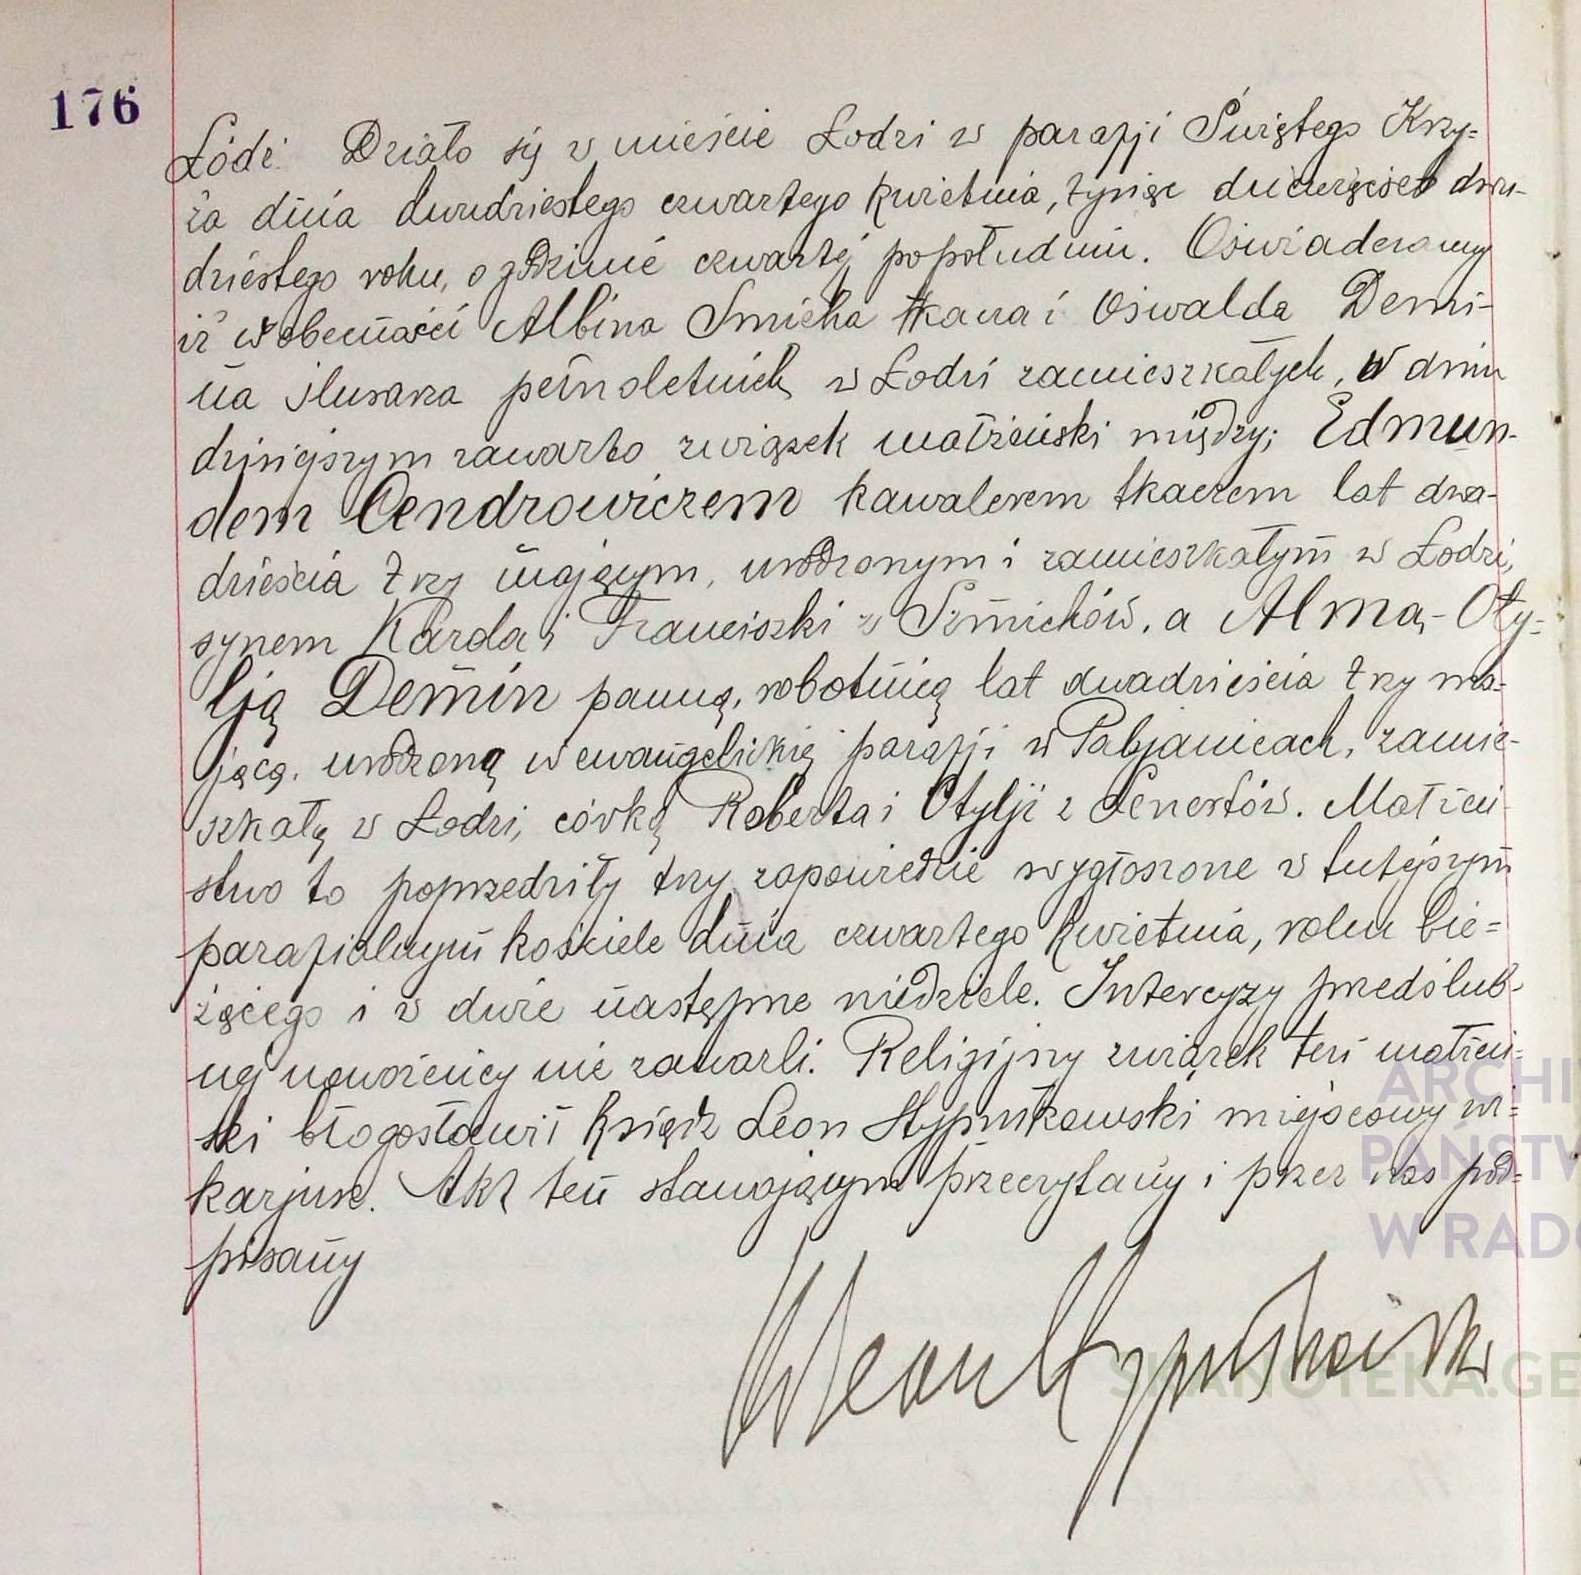 176
Łódź. Działo się w mieście Łodzi w parafji Świętego Krzy-
ża dnia dwudziestego czwartego kwietnia, tysiąc dziewięćset dwu-
dziestego roku, o godzinie czwartej popołudniu. Oświadczamy
iż w obecności Albina Smicha tkacza i Oswalda Demi-
na ślusarza pełnoletnich w Łodzi zamieszkałych, w dniu
dzisiejszym zawarto związek małżeński między; Edmun-
dem Cendrowiczem kawalerem tkaczem lat dwa-
dzieścia trzy mającym, urodzonym i zamieszkałym w Łodzi,
synem Karola i Franciszki z Szmichów, a Almą-Oty-
lją Demin panną, robotnicą lat dwadzieścia trzy ma-
jącą, urodzoną w ewangelickiej parafji w Pabjanicach, zamie-
szkałą w Łodzi, córką Roberta i Otylji z Lenertów. Małżeń
stwo to poprzedziły trzy zapowiedzie wygłoszone w tutejszym
parafialnym kościele dnia czwartego kwietnia, roku bie=
żącego i w dwie następne niedziele. Intercyzy przedślub-
nej nowożeńcy nie zawarli. Religijny związek ten małżeń-
ski błogosławił ksiądz Leon Stypułkowski miejscowy wi=
karjusz. Akt ten stawającym przeczytany i przez nas pod=
pisany
ARCHI
PAŃSTW
W RADO
SKANOTEKA.GE